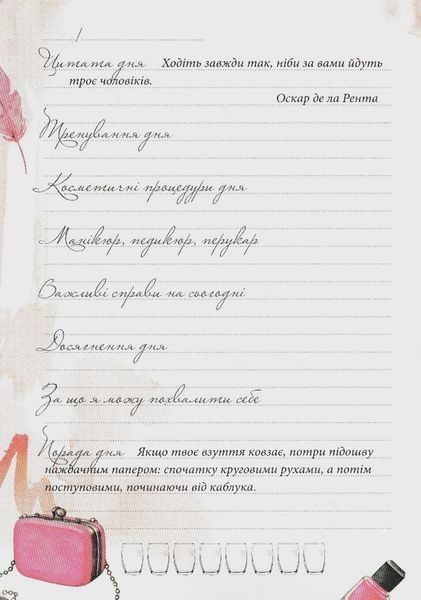 /
Цитата дня Ходіть завжди так, ніби за вами йдуть
троє чоловіків.
Оскар де ла Рента
Тренування дня
Косметичні процедури дня
Манікюр, педикюр, перукар
Важливі справи на сьогодні
Досягнення дня
За що я можу похвалити себе
Порада дня Якщо твоє взуття ковзає, потри підошву
наждачним папером: спочатку круговими рухами, а потім
поступовими, починаючи від каблука.